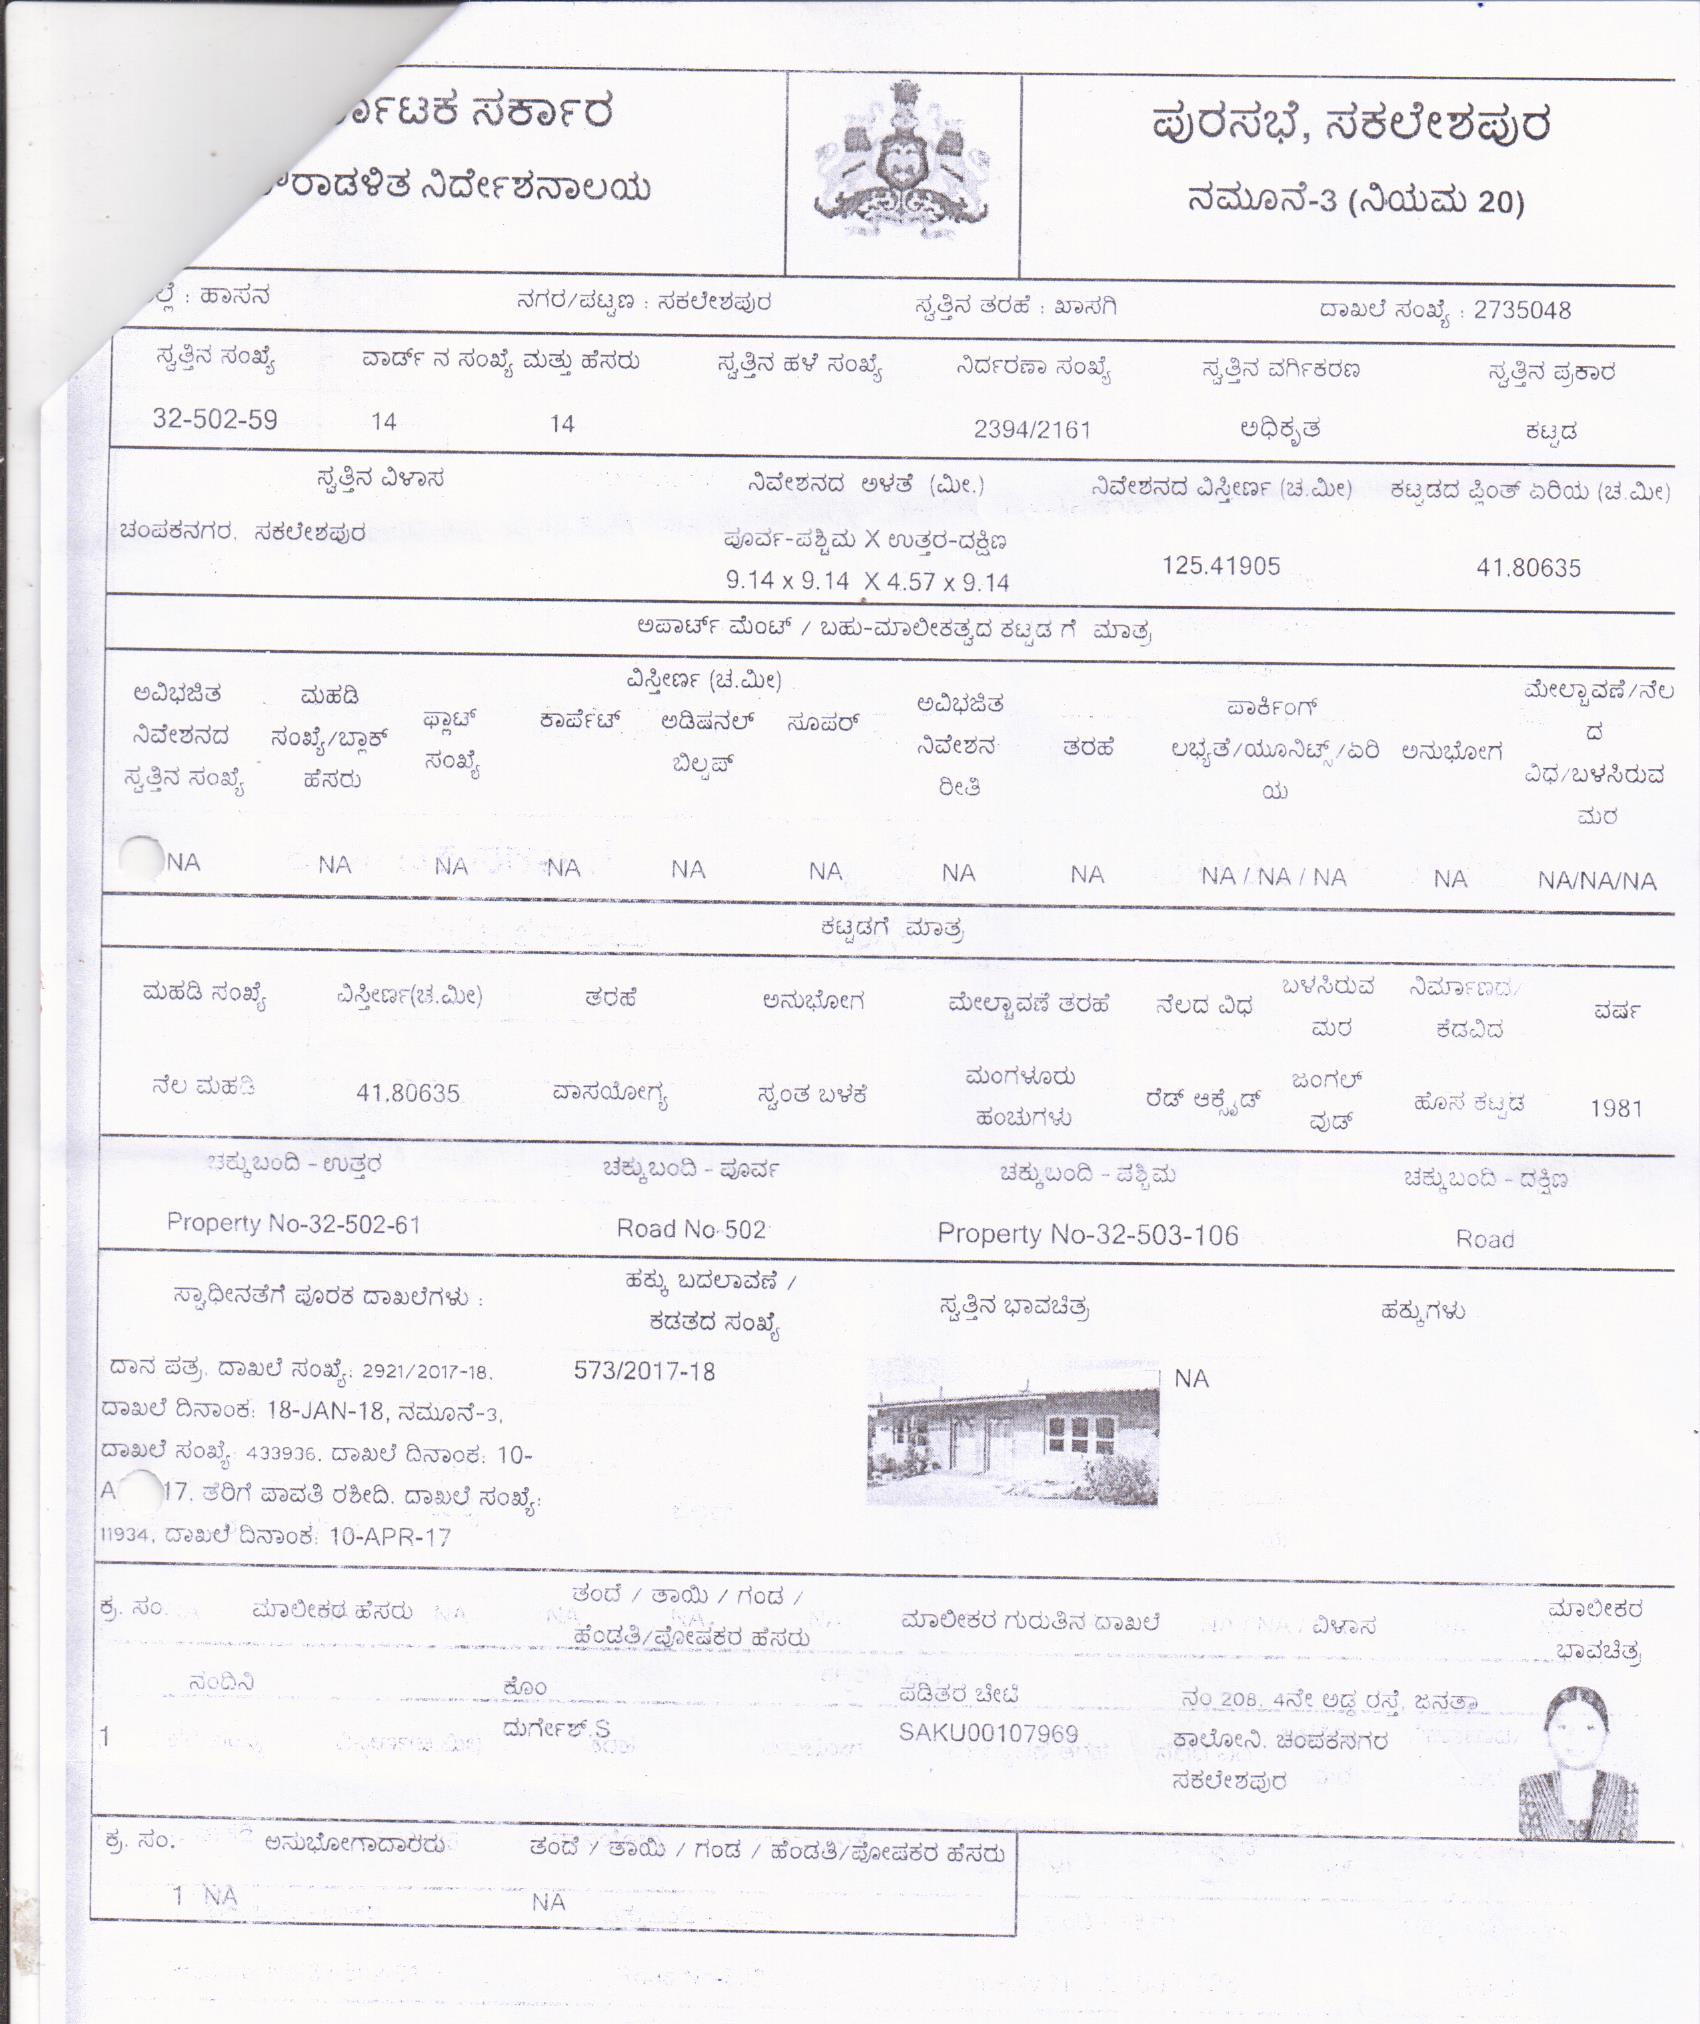 ಸರ್ಕಾರ
ನಿರ್ದೇಶನಾಲಯ
ಪುರಸಭೆ, ಸಕಲೇಶಪುರ
ನಮೂನೆ-3 (ನಿಯಮ 20)
: ಹಾಸನ ನಗರ/ಪಟ್ಟಣ : ಸಕಲೇಶಪುರ ಸ್ವತ್ತಿನ ತರಹೆ : ಖಾಸಗಿ ದಾಖಲೆ ಸಂಖ್ಯೆ : 2735048
ಸ್ವತ್ತಿನ ಸಂಖ್ಯೆ ವಾರ್ಡ್ ನ ಸಂಖ್ಯೆ ಮತ್ತು ಹೆಸರು ಸ್ವತ್ತಿನ ಹಳೆ ಸಂಖ್ಯೆ ನಿರ್ದರಣಾ ಸಂಖ್ಯೆ ಸ್ವತ್ತಿನ ವರ್ಗಿಕರಣ ಸ್ವತ್ತಿನ ಪ್ರಕಾರ
32-502-59 14 14 2394/2161 ಅಧಿಕೃತ ಕಟ್ಟಡ
ಸ್ವತ್ತಿನ ವಿಳಾಸ ನಿವೇಶನದ ಅಳತೆ (ಮೀ.) ನಿವೇಶನದ ವಿಸ್ತೀರ್ಣ (ಚ.ಮೀ) ಕಟ್ಟಡದ ಪ್ಲಿಂತ್ ಏರಿಯ (ಚ.ಮೀ)
ಚಂಪಕನಗರ, ಸಕಲೇಶಪುರ ಪೂರ್ವ-ಪಶ್ಚಿಮ X ಉತ್ತರ-ದಕ್ಷಿಣ
9.14 x 9.14 X 4.57 x 9.14 125.41905 41.80635
ಅಪಾರ್ಟ್ ಮೆಂಟ್ / ಬಹು-ಮಾಲೀಕತ್ವದ ಕಟ್ಟಡ ಗೆ ಮಾತ್ರ
ವಿಸ್ತೀರ್ಣ (ಚ.ಮೀ)
ಅವಿಭಜಿತ ಮಹಡಿ ಫ್ಲಾಟ್ ಕಾರ್ಪೆಟ್ ಅಡಿಷನಲ್ ಸೂಪರ್ ಅವಿಭಜಿತ ಪಾರ್ಕಿಂಗ್ ಮೇಲ್ಚಾವಣೆ/ನೆಲ
ನಿವೇಶನದ ಸಂಖ್ಯೆ/ಬ್ಲಾಕ್ ಸಂಖ್ಯೆ ಬಿಲ್ಟಪ್ ನಿವೇಶನ ತರಹೆ ಲಭ್ಯತೆ/ಯೂನಿಟ್ಸ್/ಏರಿ ಅನುಭೋಗ ದ
ಸ್ವತ್ತಿನ ಸಂಖ್ಯೆ ಹೆಸರು ರೀತಿ ಯ ವಿಧ/ಬಳಸಿರುವ
ಮರ
NA NA NA NA NA NA NA NA NA / NA / NA NA NA/NA/NA
ಕಟ್ಟಡಗೆ ಮಾತ್ರ
ಮಹಡಿ ಸಂಖ್ಯೆ ವಿಸ್ತೀರ್ಣ(ಚ.ಮೀ) ತರಹೆ ಅನುಭೋಗ ಮೇಲ್ಚಾವಣೆ ತರಹೆ ನೆಲದ ವಿಧ ಬಳಸಿರುವ ನಿರ್ಮಾಣದ/ ವರ್ಷ
ಮರ ಕೆಡವಿದ
ನೆಲ ಮಹಡಿ 41.80635 ವಾಸಯೋಗ್ಯ ಸ್ವಂತ ಬಳಕೆ ಮಂಗಳೂರು ರೆಡ್ ಆಕ್ಸೈಡ್ ಜಂಗಲ್ ಹೊಸ ಕಟ್ಟಡ 1981
ಹಂಚುಗಳು ವುಡ್
ಚಕ್ಕುಬಂದಿ - ಉತ್ತರ ಚಕ್ಕುಬಂದಿ - ಪೂರ್ವ ಚಕ್ಕುಬಂದಿ - ಪಶ್ಚಿಮ ಚಕ್ಕುಬಂದಿ - ದಕ್ಷಿಣ
Property No-32-502-61 Road No 502 Property No-32-503-106 Road
ಸ್ವಾಧೀನತೆಗೆ ಪೂರಕ ದಾಖಲೆಗಳು : ಹಕ್ಕು ಬದಲಾವಣೆ / ಸ್ವತ್ತಿನ ಭಾವಚಿತ್ರ ಹಕ್ಕುಗಳು
ಕಡತದ ಸಂಖ್ಯೆ
ದಾನ ಪತ್ರ, ದಾಖಲೆ ಸಂಖ್ಯೆ: 2921/2017-18, 573/2017-18 NA
ದಾಖಲೆ ದಿನಾಂಕ: 18-JAN-18, ನಮೂನೆ-3,
ದಾಖಲೆ ಸಂಖ್ಯೆ: 433936, ದಾಖಲೆ ದಿನಾಂಕ: 10-
17, ತೆರಿಗೆ ಪಾವತಿ ರಶೀದಿ, ದಾಖಲೆ ಸಂಖ್ಯೆ:
11934, ದಾಖಲೆ ದಿನಾಂಕ: 10-APR-17
ಕ್ರ. ಸಂ. ಮಾಲೀಕರ ಹೆಸರು ತಂದೆ / ತಾಯಿ / ಗಂಡ / ಮಾಲೀಕರ ಗುರುತಿನ ದಾಖಲೆ ವಿಳಾಸ ಮಾಲೀಕರ
ಹೆಂಡತಿ/ಪೋಷಕರ ಹೆಸರು ಭಾವಚಿತ್ರ
ನಂದಿನಿ ಕೊಂ ಪಡಿತರ ಚೀಟಿ ನಂ 208, 4ನೇ ಅಡ್ಡ ರಸ್ತೆ, ಜನತಾ
1 ದುರ್ಗೇಶ್.S SAKU00107969 ಕಾಲೋನಿ, ಚಂಪಕನಗರ
ಸಕಲೇಶಪುರ
ಕ್ರ. ಸಂ. ಅನುಭೋಗಾದಾರರು ತಂದೆ / ತಾಯಿ / ಗಂಡ / ಹೆಂಡತಿ/ಪೋಷಕರ ಹೆಸರು
1 NA NA